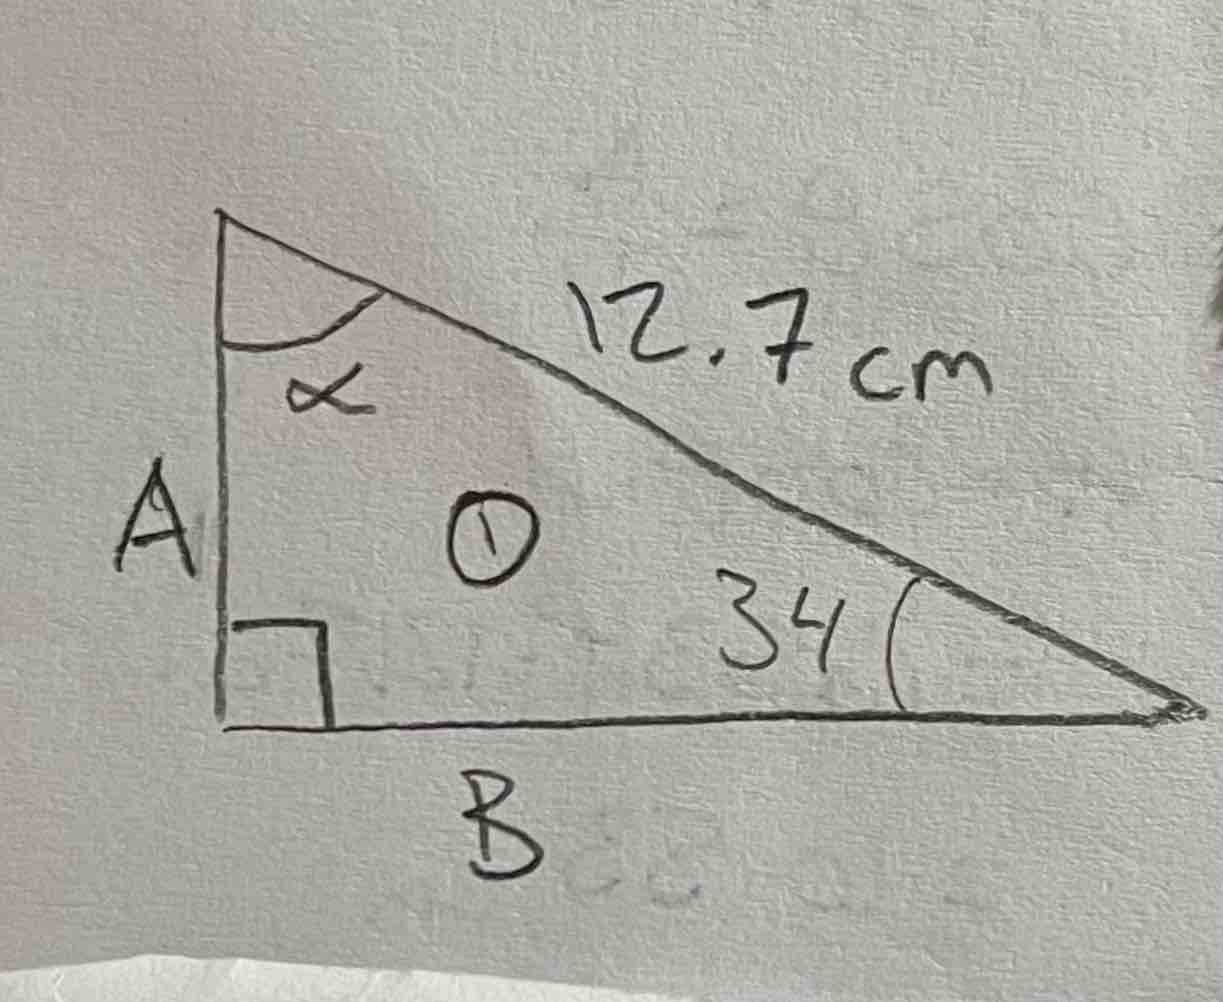 12.7 cm
α
A
1
34
B